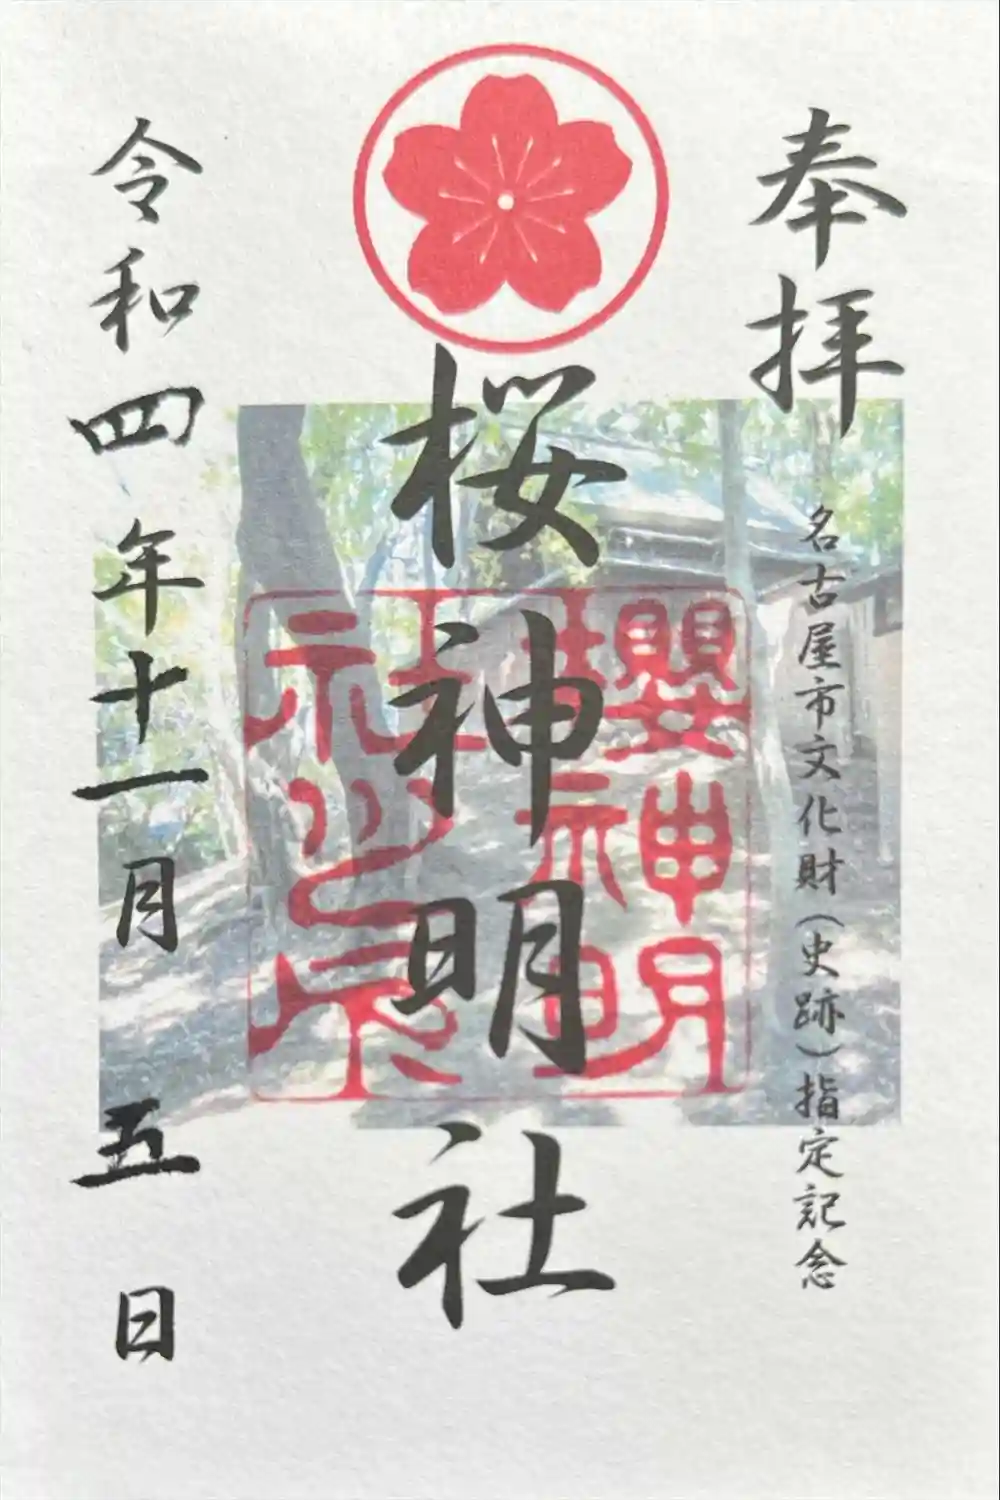 奉拝
名古屋市文化財（史跡）指定記念
桜神明社
櫻神明社之印
令和四年十一月五日